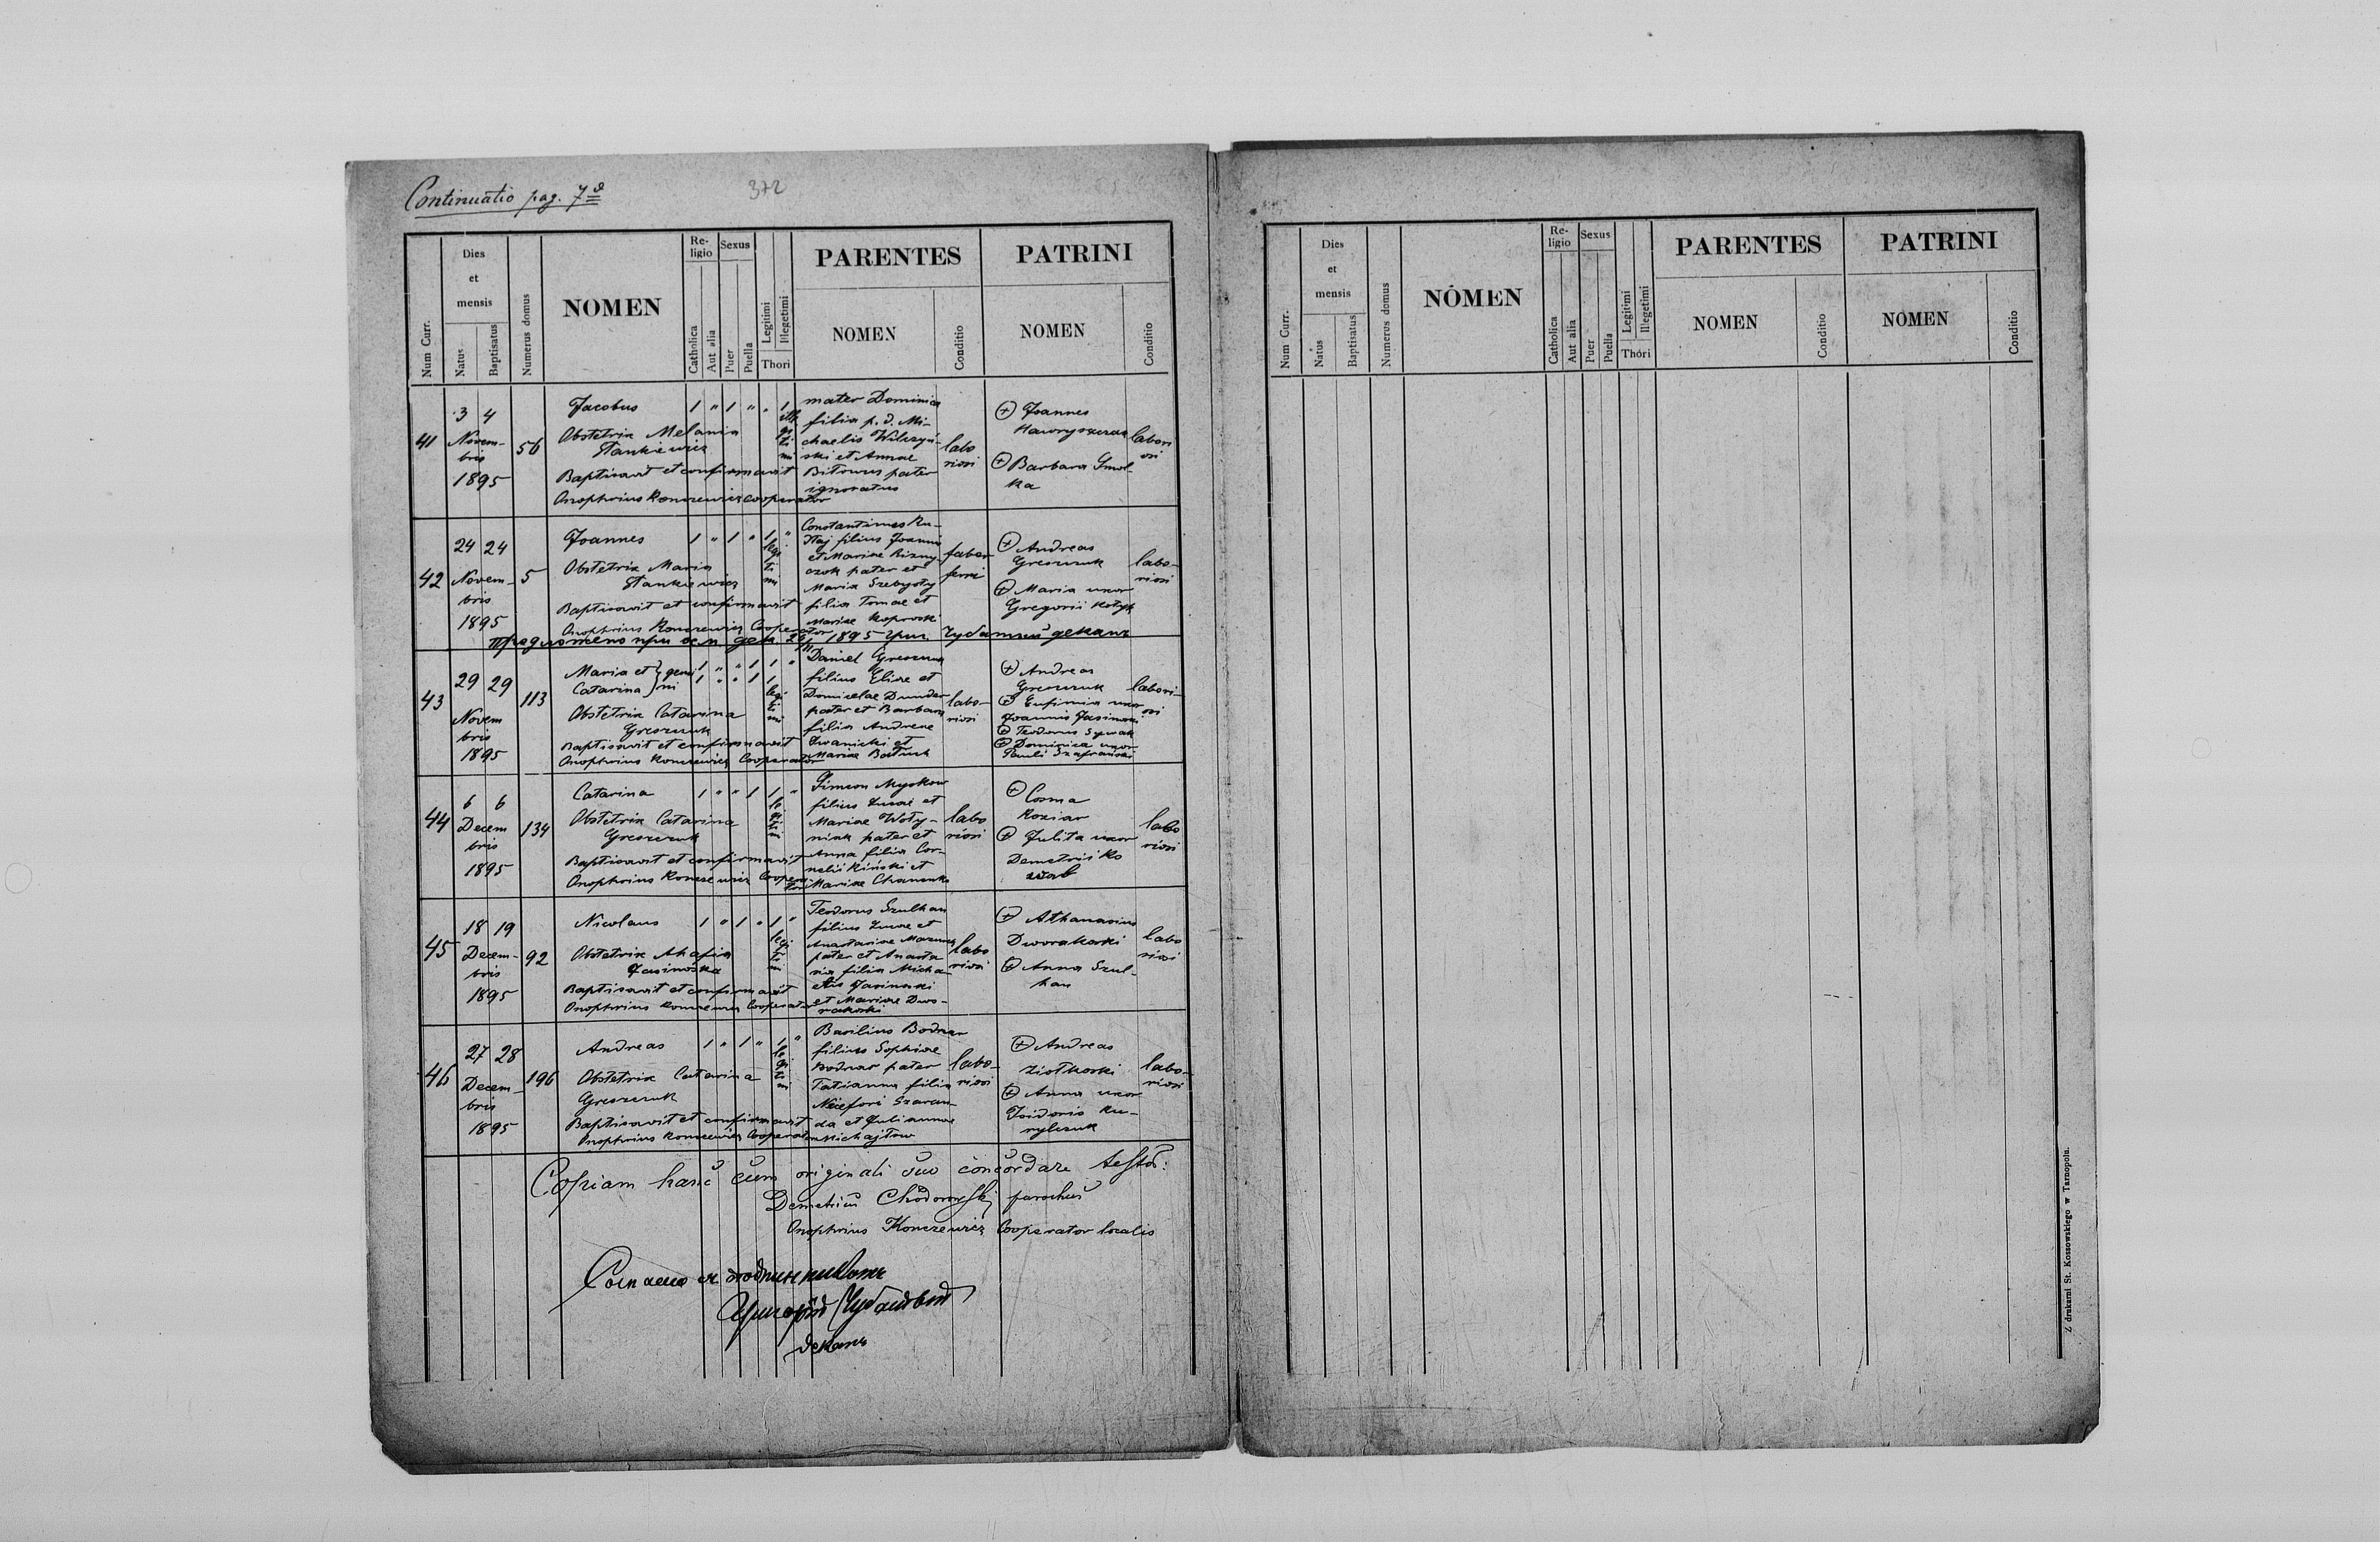 Continuatio pag. 7
372
Num Curr.
Dies
et
mensis
Natus
Baptisatus
Numerus domus
NOMEN
Re-
ligio
Catholica
Aut alia
Sexus
Puer
Puella
Legitimi
Illegetimi
Thori
PARENTES
NOMEN
Conditio
PATRINI
NOMEN
Conditio
41
3 4
Novem-
bris
1895
56
Jacobus
1 " 1 " " 1
Obstetrix Melania
Stankiewicz
Baptisavit et confirmavit
Onophrius Konczewicz cooperator
ille
gi
ti
mi
mater Dominica
filia p. d. Mi-
chaelis Wilczyń-
ski et Annae
Bitowus pater
ignoratus
labo
riosi
Joannes
Hawryszczuk
Barbara Smol-
ka
labori
osi
42
24 24
Novem-
bris
1895
5
Joannes
1 " 1 " 1 "
Obstetrix Maria
Stankiewicz
Baptisavit et confirmavit
Onophrius Konczewicz Cooperator
legi
ti
mi
Constantinus Ru-
filius Joannis
et Mariae Rizny-
czok pater et
Maria Szebysty
filia Tomae et
Mariae
faber
ferri
Andreas
Greszczuk
Maria uxor
Gregorii Kotyk
labo-
riosi
1895
43
29 29
Novem
bris
1895
113
Maria et } gemi
Catarina } ni
1 " " 1 1 "
1 " " 1 1
Obstetrix Catarina
Greszczuk
Baptisavit et confirmavit
Onophrius Konczewicz Cooperator
legi
ti
mi
Daniel Greszczuk
filius Eliae et
Domicelae Dunder
pater et Barbara
filia Andreae
Iwanicki et
Mariae
labo-
riosi
Andreas
Greszczuk
Eufimia uxor
Joannis Jasinski
Teodorus Sywak
Dominica uxor
Pauli Szafrański
labori-
osi
44
6 6
Decem
bris
1895
134
Catarina
1 " " 1 1 "
Obstetrix Catarina
Greszczuk
Baptisavit et confirmavit
Onophrius Konczewicz Coopera
tor
le
gi
ti
mi
Simeon Myskow
filius Lucae et
Mariae Woty-
niak pater et
Anna filia Cor-
nelii Kiński et
Mariae
labo
riosi
Cosma
Koziar
Julita uxor
Demetrii Ko
labo
riosi
45
18 19
Decem-
bris
1895
92
Nicolaus
1 " 1 " 1 "
Obstetrix Ahafia
Jasinoska
Baptisavit et confirmavit
Onophrius Konczewicz Cooperator
legi
ti
mi
Teodorus Szulhan
filius Lucae et
Anastasiae
pater et Anasta
sia filia Micha
elis Jasinski
et Mariae Dwo-
rakoski
labo
riosi
Athanasius
Dworakoski
Anna Szul-
han
labo
riosi
46
27 28
Decem-
bris
1895
196
Andreas
1 " 1 " 1 "
Obstetrix Catarina
Greszczuk
Baptisavit et confirmavit
Onophrius Konczewicz Cooperator
le
gi
ti
mi
Basilius Bodnar
filius Sophiae
Bodnar pater
Tatianna filia
Nicefori Szaran-
da et Juliannae
Michajłow
labo-
riosi
Andreas
Ziołkoski
Anna uxor
Isidoris Ku-
rylczuk
labo-
riosi
Copiam hanc cum originali suo concordare testor:
Demetrius Chodorowskij parochus
Onophrius Konczewicz Cooperator localis
деканъ
Num Curr.
Dies
et
mensis
Natus
Baptisatus
Numerus domus
NÓMEN
Re-
ligio
Catholica
Aut alia
Sexus
Puer
Puella
Legitimi
Illegetimi
Thóri
PARENTES
NOMEN
Conditio
PATRINI
NOMEN
Conditio
Z drukarni St. Kossowskiego w Tarnopolu.